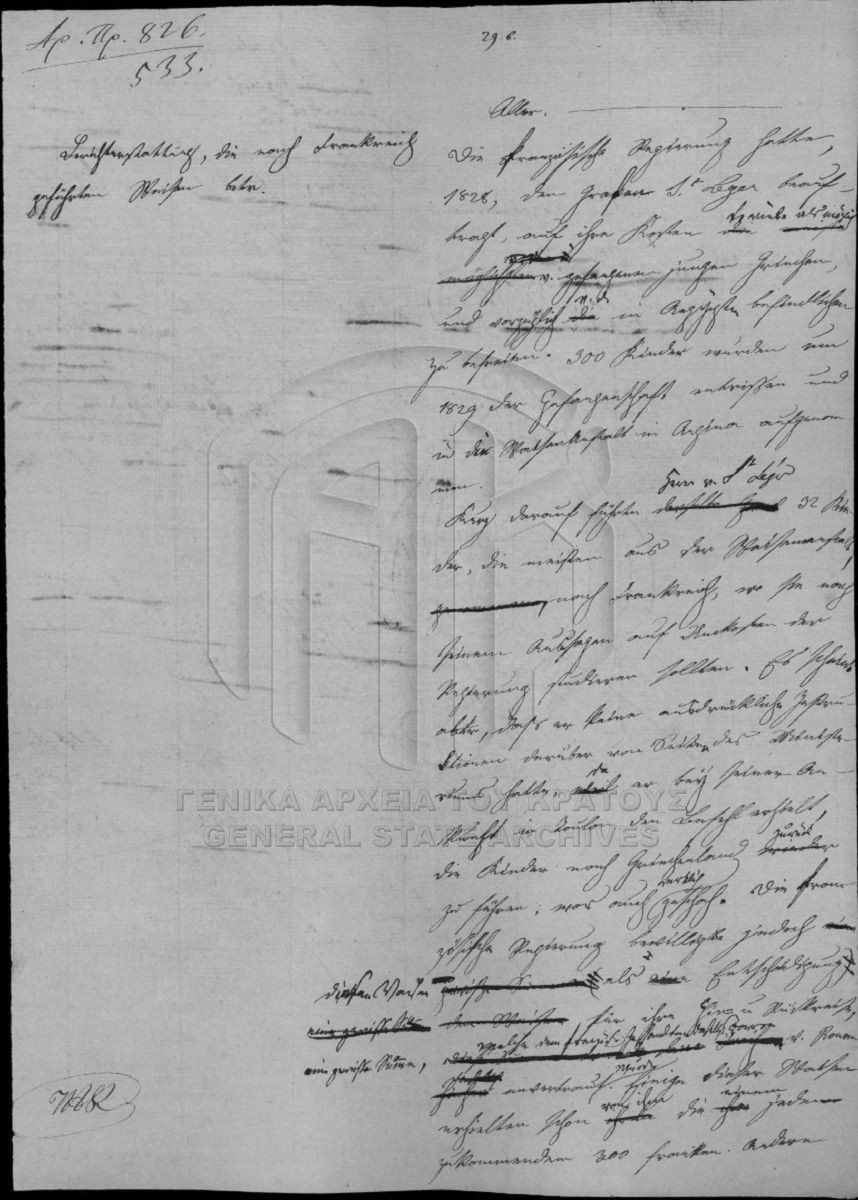 Αρ. Πρ. 826.
533.
29. 6.
Berichterstattung, die nach Frankreich
geführten Waisen betr.
Aller.
Die französische Regierung hatte,
1828, den Grafen St. Leger beauf-
tragt, auf ihre Kosten so viele als möglich
v. gefangenen jungen Griechen,
und vorzüglich v. d. in Aegypten befindlichen
zu befreien. 300 Kinder wurden um
1829 der Gefangenschaft entrissen und
in die Waisenanstalt in Aegina aufgenom
men.
Kurz darauf führte Herr v. St. Leger 32 Kin
der, die meisten aus der Waisenanstalt,
nach Frankreich, wo sie nach
seinem Aussagen auf Unkosten der
Regierung studieren sollten. Es scheint
aber, dass er keine ausdrückliche Instru
ktionen darüber von Seiten des Ministe
riums hatte, da er bey seiner An-
kunft in Toulon den Befehl erhielt,
die Kinder nach Griechenland zurück
zu führen; was auch wirklich geschah. Die fran
zösische Regierung bewilligte jedoch
diesen Waisen
eine gewisse Summe,
als Entschädigung
für ihre Hin- u Rückreise,
welche dem französ.
v. Rouen
anvertraut wurde. Einige dieser Waisen
erhielten schon von ihm die einem jeden
zukommenden 300 Franken. Andere
ΓΕΝΙΚΑ ΑΡΧΕΙΑ ΤΟΥ ΚΡΑΤΟΥΣ
GENERAL STATE ARCHIVES